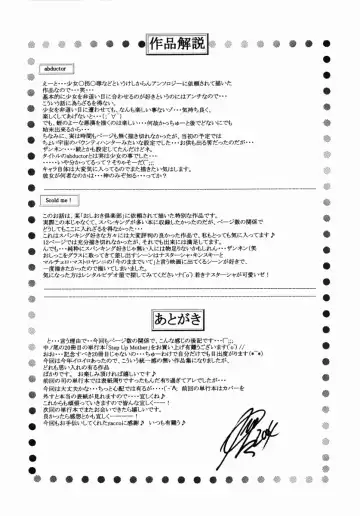 作品解説
abductor
えーと・・・少女○拐○辱などというけしからんアンソロジーに依頼されて描いた
作品なので・・・笑・・・
基本的に少女を非道い目に合わせるのが好きというのにはアンチなので
こういう話にあらざるを得ない。
少女を非道い目に遭わせても、なんも楽しい事ないゾ・・・気持ち良く、
楽しくしてあげないと・・・(;´∀`)
でも、蛸のような悪漢を描くのは楽しい・・・何故かっちゅーと後でどないにでも
始末出来るから・・・
ちなみに、実は時間もページも無く描き切れなかったが、当初の予定では
ちょい宇宙のバウンティハンターみたいな設定でした・・・お供も出る筈だったのだが・・・
ザンネン・・・銃とかも設定してたんだけどネ。
タイトルのabductorとは実は少女の事でした・・・
・・・・・いや分かるって？そりゃそーだ(´；；
キャラ自体は大変気に入ってるのでまた描きたい気はします。
彼女が何者なのかは・・・神のみぞ知る・・・・ってか？
Scold me !
このお話は、某「おしおき倶楽部」に依頼されて描いた特別な作品です。
実際この本じゃなくて、スパンキングものが多い本に収録したかったのだが、ページ数の関係で
どうしてもここに入れざるを得なかった・・・
これはスパンキング好きな方々には大変評判の良かった作品で、私もとっても気に入ってます♪
12ページでは充分描き切れなかったが、それでも出来には満足してます。
んでも・・・純粋にスパンキング好きじゃ無い人には場違いなものかもしれない・・・ザンネン(笑
おしっこをグラスに取ってきて差し出すシーンはナスターシャ・キンスキーと
マルチェロ・マストロヤンニの「今のままでいて」と言う映画に出てくるシーンが好きで、
一度描きたかったので描いてしまいました。
気になった方はレンタルビデオ屋で探してみてくださいナ(´ο`) 若きナスターシャが可愛いゼ！
あとがき
と・・・言う理由で・・・今回もページ数の関係で、こんな感じの後記です・・・(´；；
中ノ尾の20冊目の単行本「Step Up Mother」をお買い上げ有難うございます(´ο`)//
おお・・・記念すべき20冊目じゃないの・・・ちゅーわけで自分だけでも目出度がります(*^^*)
今回は年イロイロあったので、こういう統一感の無い作品集になりましたが、
どれも思い入れの有る作品
ばかりです。 お楽しみ頂ければ嬉しいです♪
前回の司の単行本では表紙周りですったもんだ有り過ぎてアレでしたが・・・
今回は大丈夫かな・・・ちっと心配では有るが・・・(´-`A;) 前回の単行本はカバーを
外すと本当の表紙が見れます・・・・・宜しくね♪
これからも頑張っていきますので皆んな宜しくー！
次回の単行本でまたお会いできたら嬉しいです。
良かったら感想とかも宜しくーーーーー！
今回もお手伝いしてくれたyaccoに感謝♪ いつも有難う♪